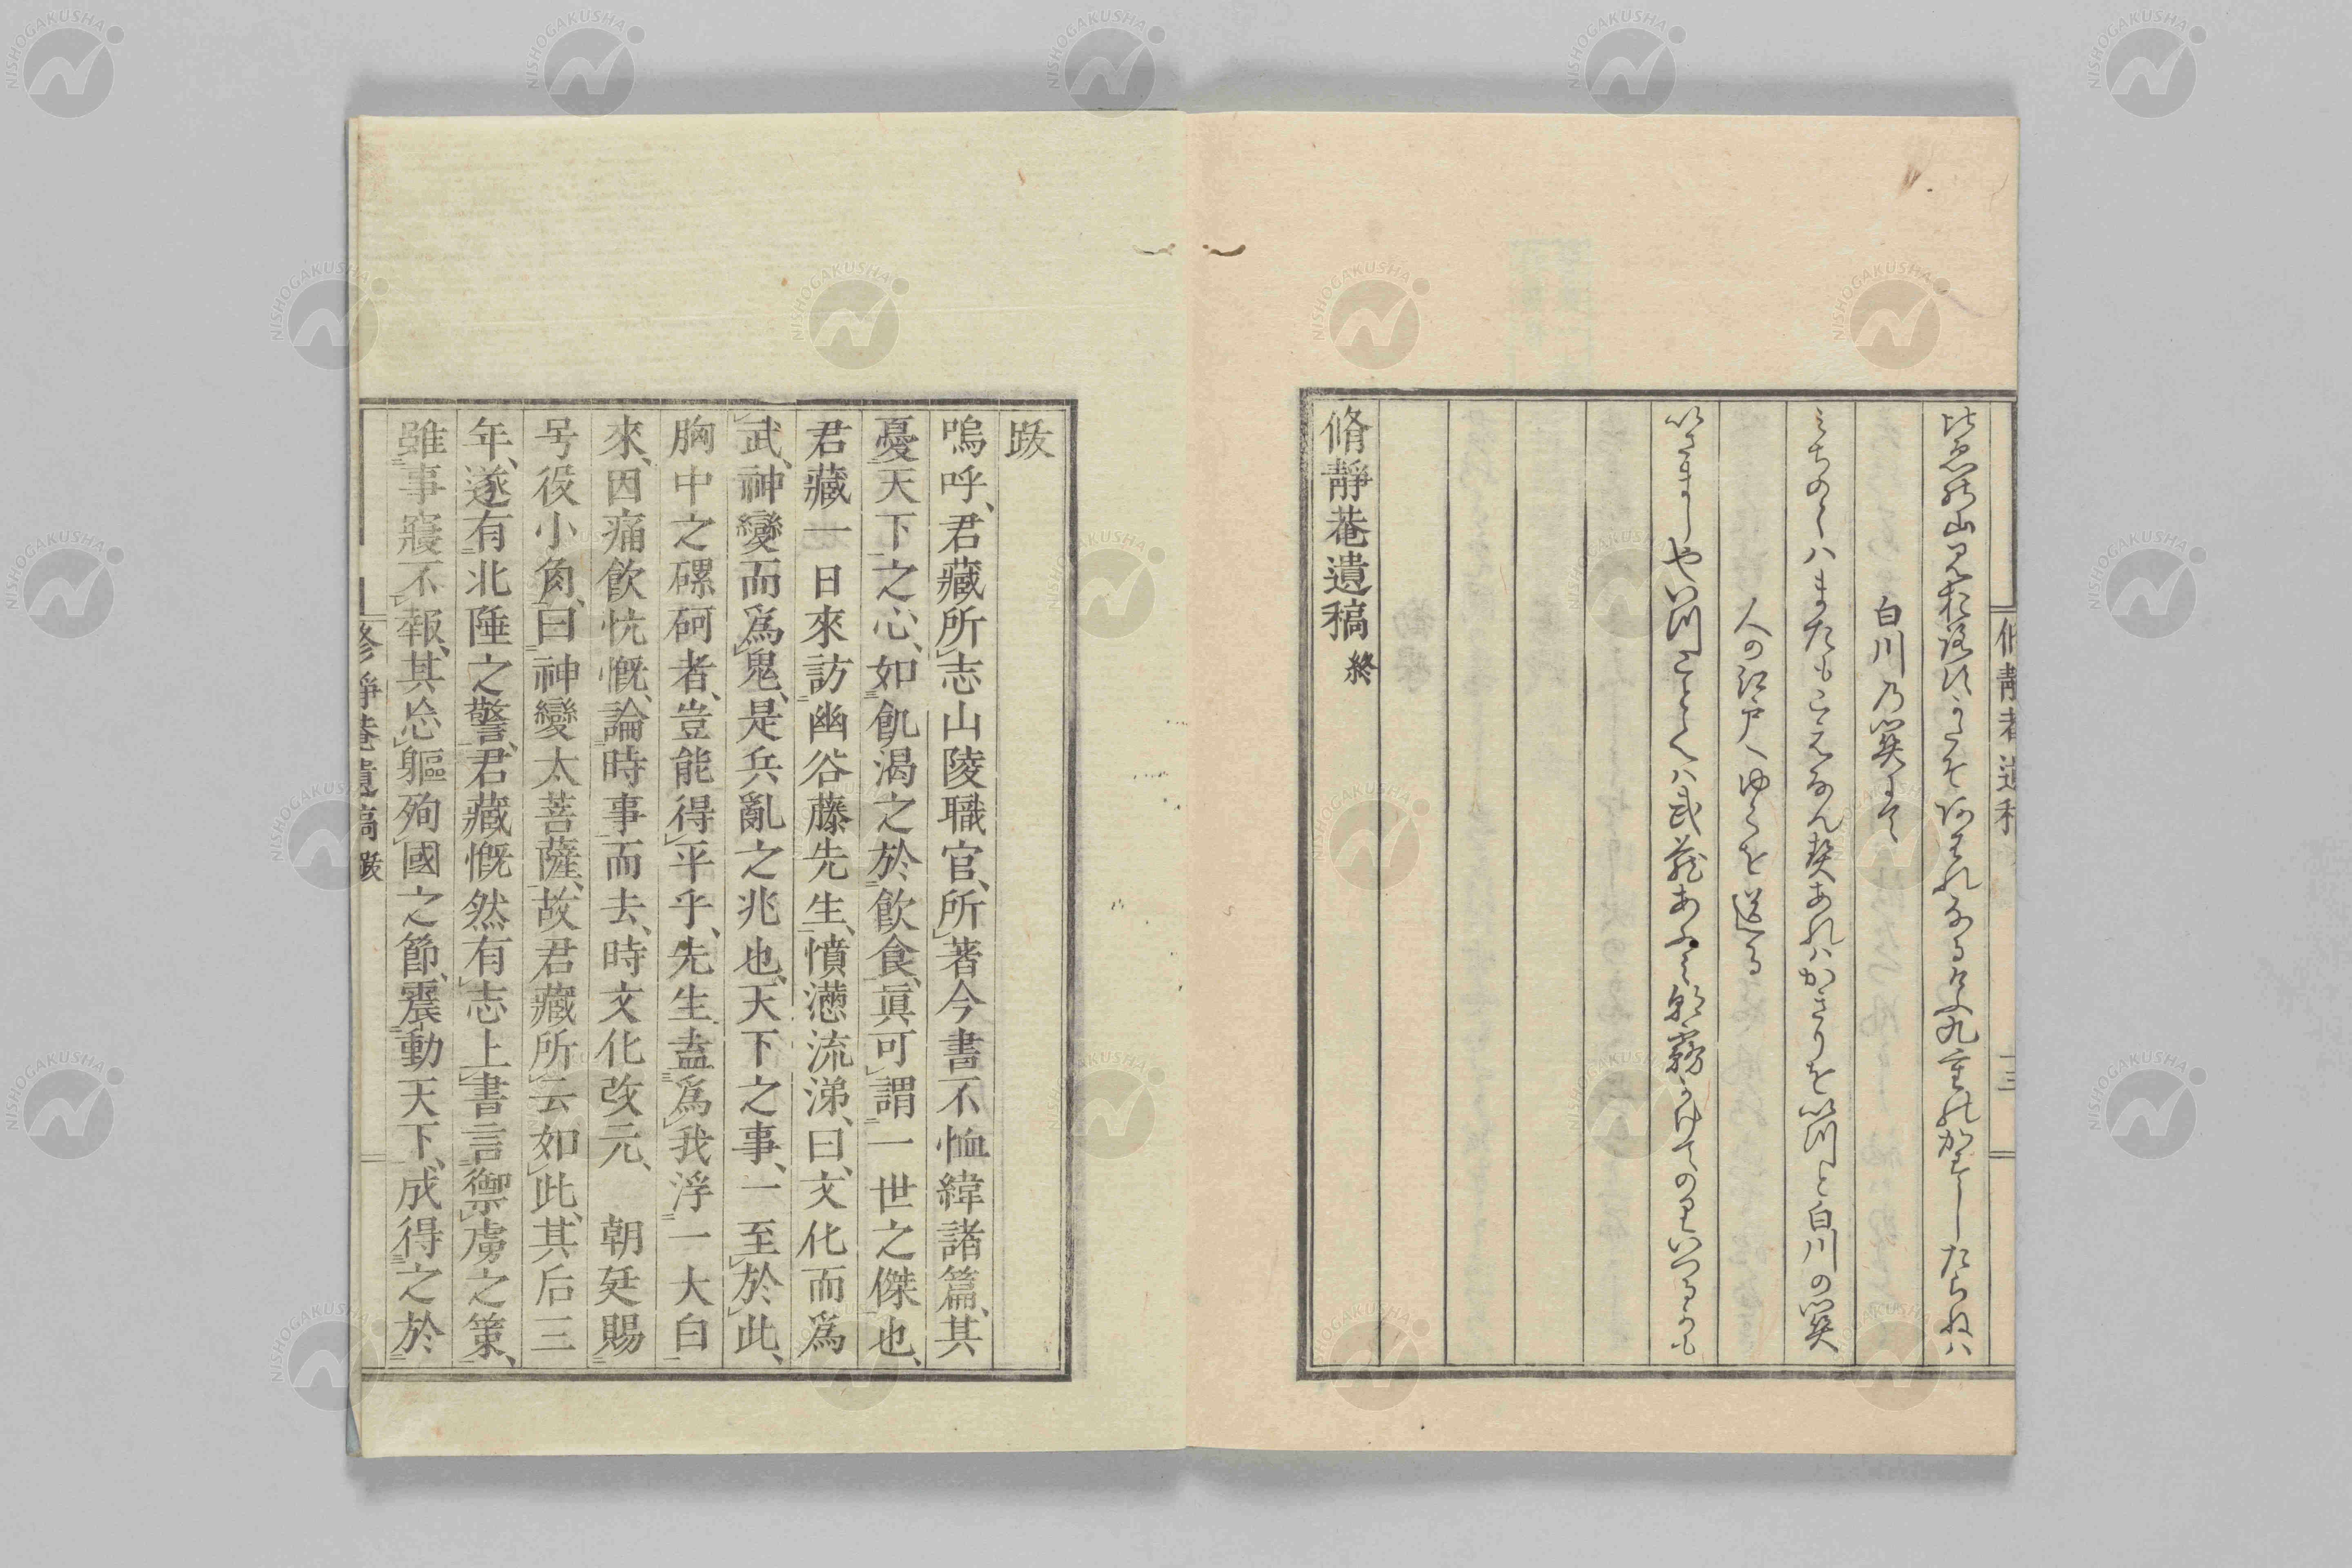 白川乃関にて
みちのくハまたもこえなん契あれハかきりをいつと白川の関
人の江戸へゆくを送る
脩靜菴遺稿 終
跋
嗚呼、君藏所志山陵職官、所著今書不恤緯諸篇、其
憂天下之心、如飢渴之於飮食、眞可謂一世之傑也、
君藏一日來訪幽谷藤先生、憤懣流涕、曰、文化而爲
武、神變而爲鬼、是兵亂之兆也、天下之事、一至於此、
胸中之磥砢者、豈能得平乎、先生盍爲我浮一大白
來、因痛飮忼慨、論時事而去、時文化改元、 朝廷賜
号役小角、曰神變太菩薩、故君藏所云如此、其后三
年、遂有北陲之警、君藏慨然有志上書言禦虜之策、
雖事寢不報、其忘軀殉國之節、震動天下、成得之於
脩靜菴遺稿 跋
NISHOGAKUSHA